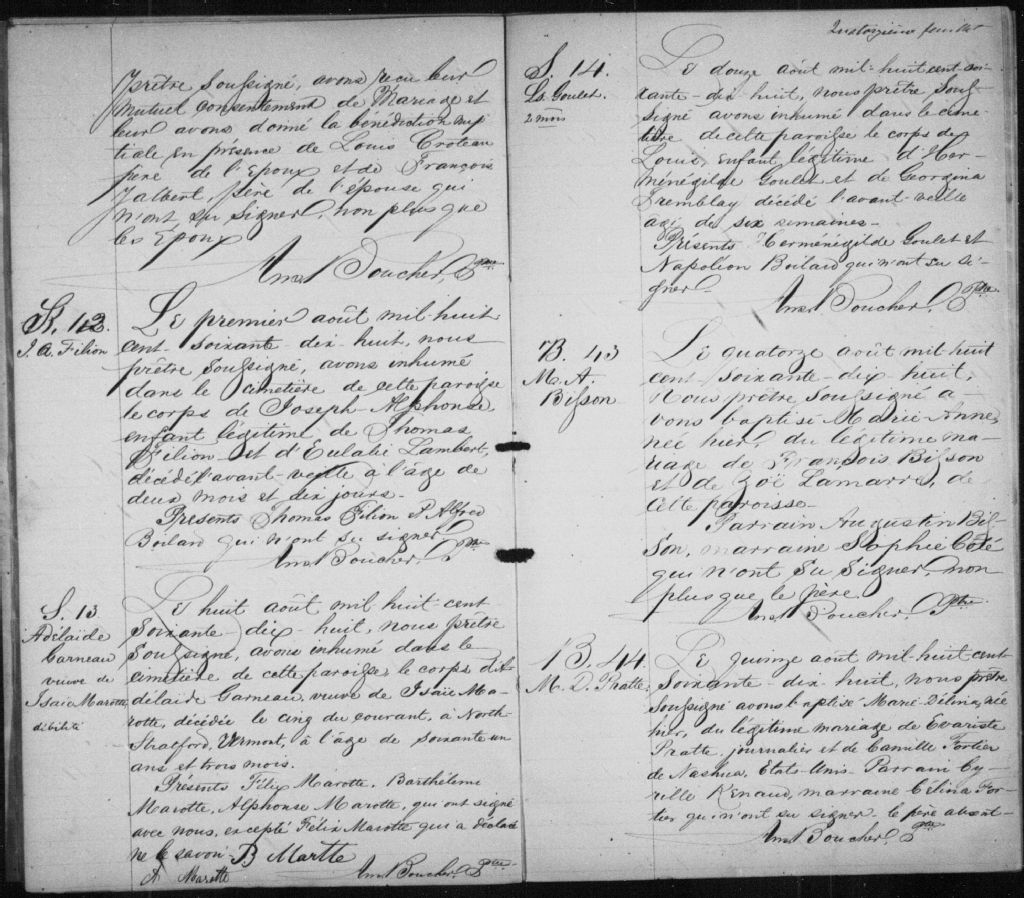 prêtre soussigné, avons reçu leur
mutuel consentement de Mariage et
leur avons donné la bénédiction nup
tiale en présence de Louis Croteau
père de l'Epoux et de François
Jalbert, père de l'épouse qui
n'ont su signer, non plus que
les Epoux
Ams. Boucher, Ptre
S. 12
J. A. Filion
Le premier août mil-huit
cent-soixante-dix-huit, nous
prêtre soussigné, avons inhumé
dans le cimetière de cette paroisse
le corps de Joseph-Alphonse,
enfant légitime de Thomas
Filion et d'Eulalie Lambert,
décédé l'avant-veille à l'âge de
deux mois et dix jours.
Présents Thomas Filion & Alfred
Boilard qui n'ont su signer
Ams. Boucher, Ptre
S. 13
Adélaide
Garneau
veuve de
Isaïe Marotte,
débilité
Le huit août mil huit cent
soixante-dix-huit, nous prêtre
soussigné, avons inhumé dans le
cimetière de cette paroisse, le corps d'A
délaide Garneau, veuve de Isaïe Ma-
rotte, décédée le cinq du courant, à North
Stratford, Vermont, à l'âge de soixante un
ans et trois mois.
Présents Félix Marotte, Barthélemi
Marotte, Alphonse Marotte, qui ont signé
avec nous, excepté Félix Marotte qui a déclaré
ne le savoir. B Martte
A Marotte
Ams. Boucher, Ptre
Quatorzième feuillet
S. 14.
Ls Goulet.
2 mois
Le douze août mil-huit cent soi-
xante-dix-huit, nous prêtre sous-
signé avons inhumé dans le cime
tière de cette paroisse le corps de
Louis, enfant légitime d'Her-
ménégilde Goulet et de Georgina
Tremblay décédé l'avant-veille
agé de six semaines.
Présents Herménégilde Goulet et
Napoléon Boilard qui n'ont su si-
gner.
Ams. Boucher, Ptre
B. 43
M. A.
Bisson
Le quatorze août mil huit
cent soixante-dix-huit,
Nous prêtre soussigné a-
vons baptisé Marie-Anne,
née hier, du légitime ma-
riage de François Bisson
et de Zoé Lamarre, de
cette paroisse.
Parrain Augustin Bis-
son, marraine Sophie Coté
qui n'ont su signer, non
plus que le père.
Ams. Boucher, Ptre
B. 44.
M. D. Pratte,
Le quinze août mil huit cent
soixante-dix-huit, nous prêtre
soussigné avons baptisé Marie-Délina, née
hier, du légitime mariage de Evariste
Pratte, journalier et de Camille Fortier
de Nashua, Etats-Unis. Parrain Cy-
rille Renaud, marraine Célina For-
tier qui n'ont su signer. le père absent.
Ams. Boucher, Ptre